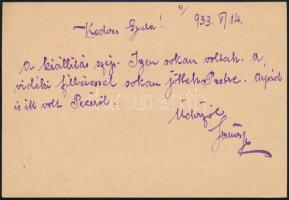 Kedves Gyula! 933. VI/14.
A kiállítás szép. Igen sokan voltak. A
vidéki filléressel sokan jöttek Pestre. Apád
is itt volt Pécsről.
Üdvözöl
János